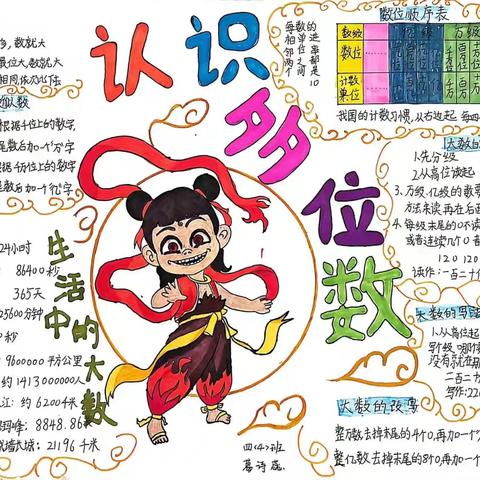 认识多位数
数,数就大
最位大,数就大
相同,依次比下去
似数
根据千位上的数字,
尾数后加一个万字
根据千万位上的数字
尾数后加一个亿字
生活中的大数
24小时
86400秒
365天
25600分钟
秒
9600000平方公里
约1413000000人
江:约6200千米
珠峰:8848.86
城墙大城:21196千米
每相邻两个
的计数单位之间
进率都是10
数位顺序表
数级
亿级
万级
数位
计数单位
我国的计数习惯,从右边起,每四
大数的
1.先分级
2.从高位读起
3.万级、亿级的数要
方法来读,再在后面
4.每级末尾的0不读
或者连续几个0
120 120
读作:一百二十
大数的写法
1.从高位起
写个级,哪个数
没有就在那
一百二六
写作:220
大数的改写
整万数去掉末尾的4个0,再加一个
整亿数去掉末尾的8个0,再加一个
四(4)班
葛诗蕊